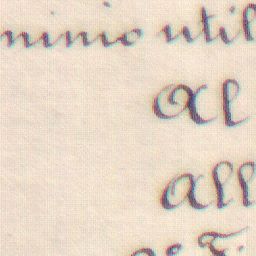 minio util
Al
All